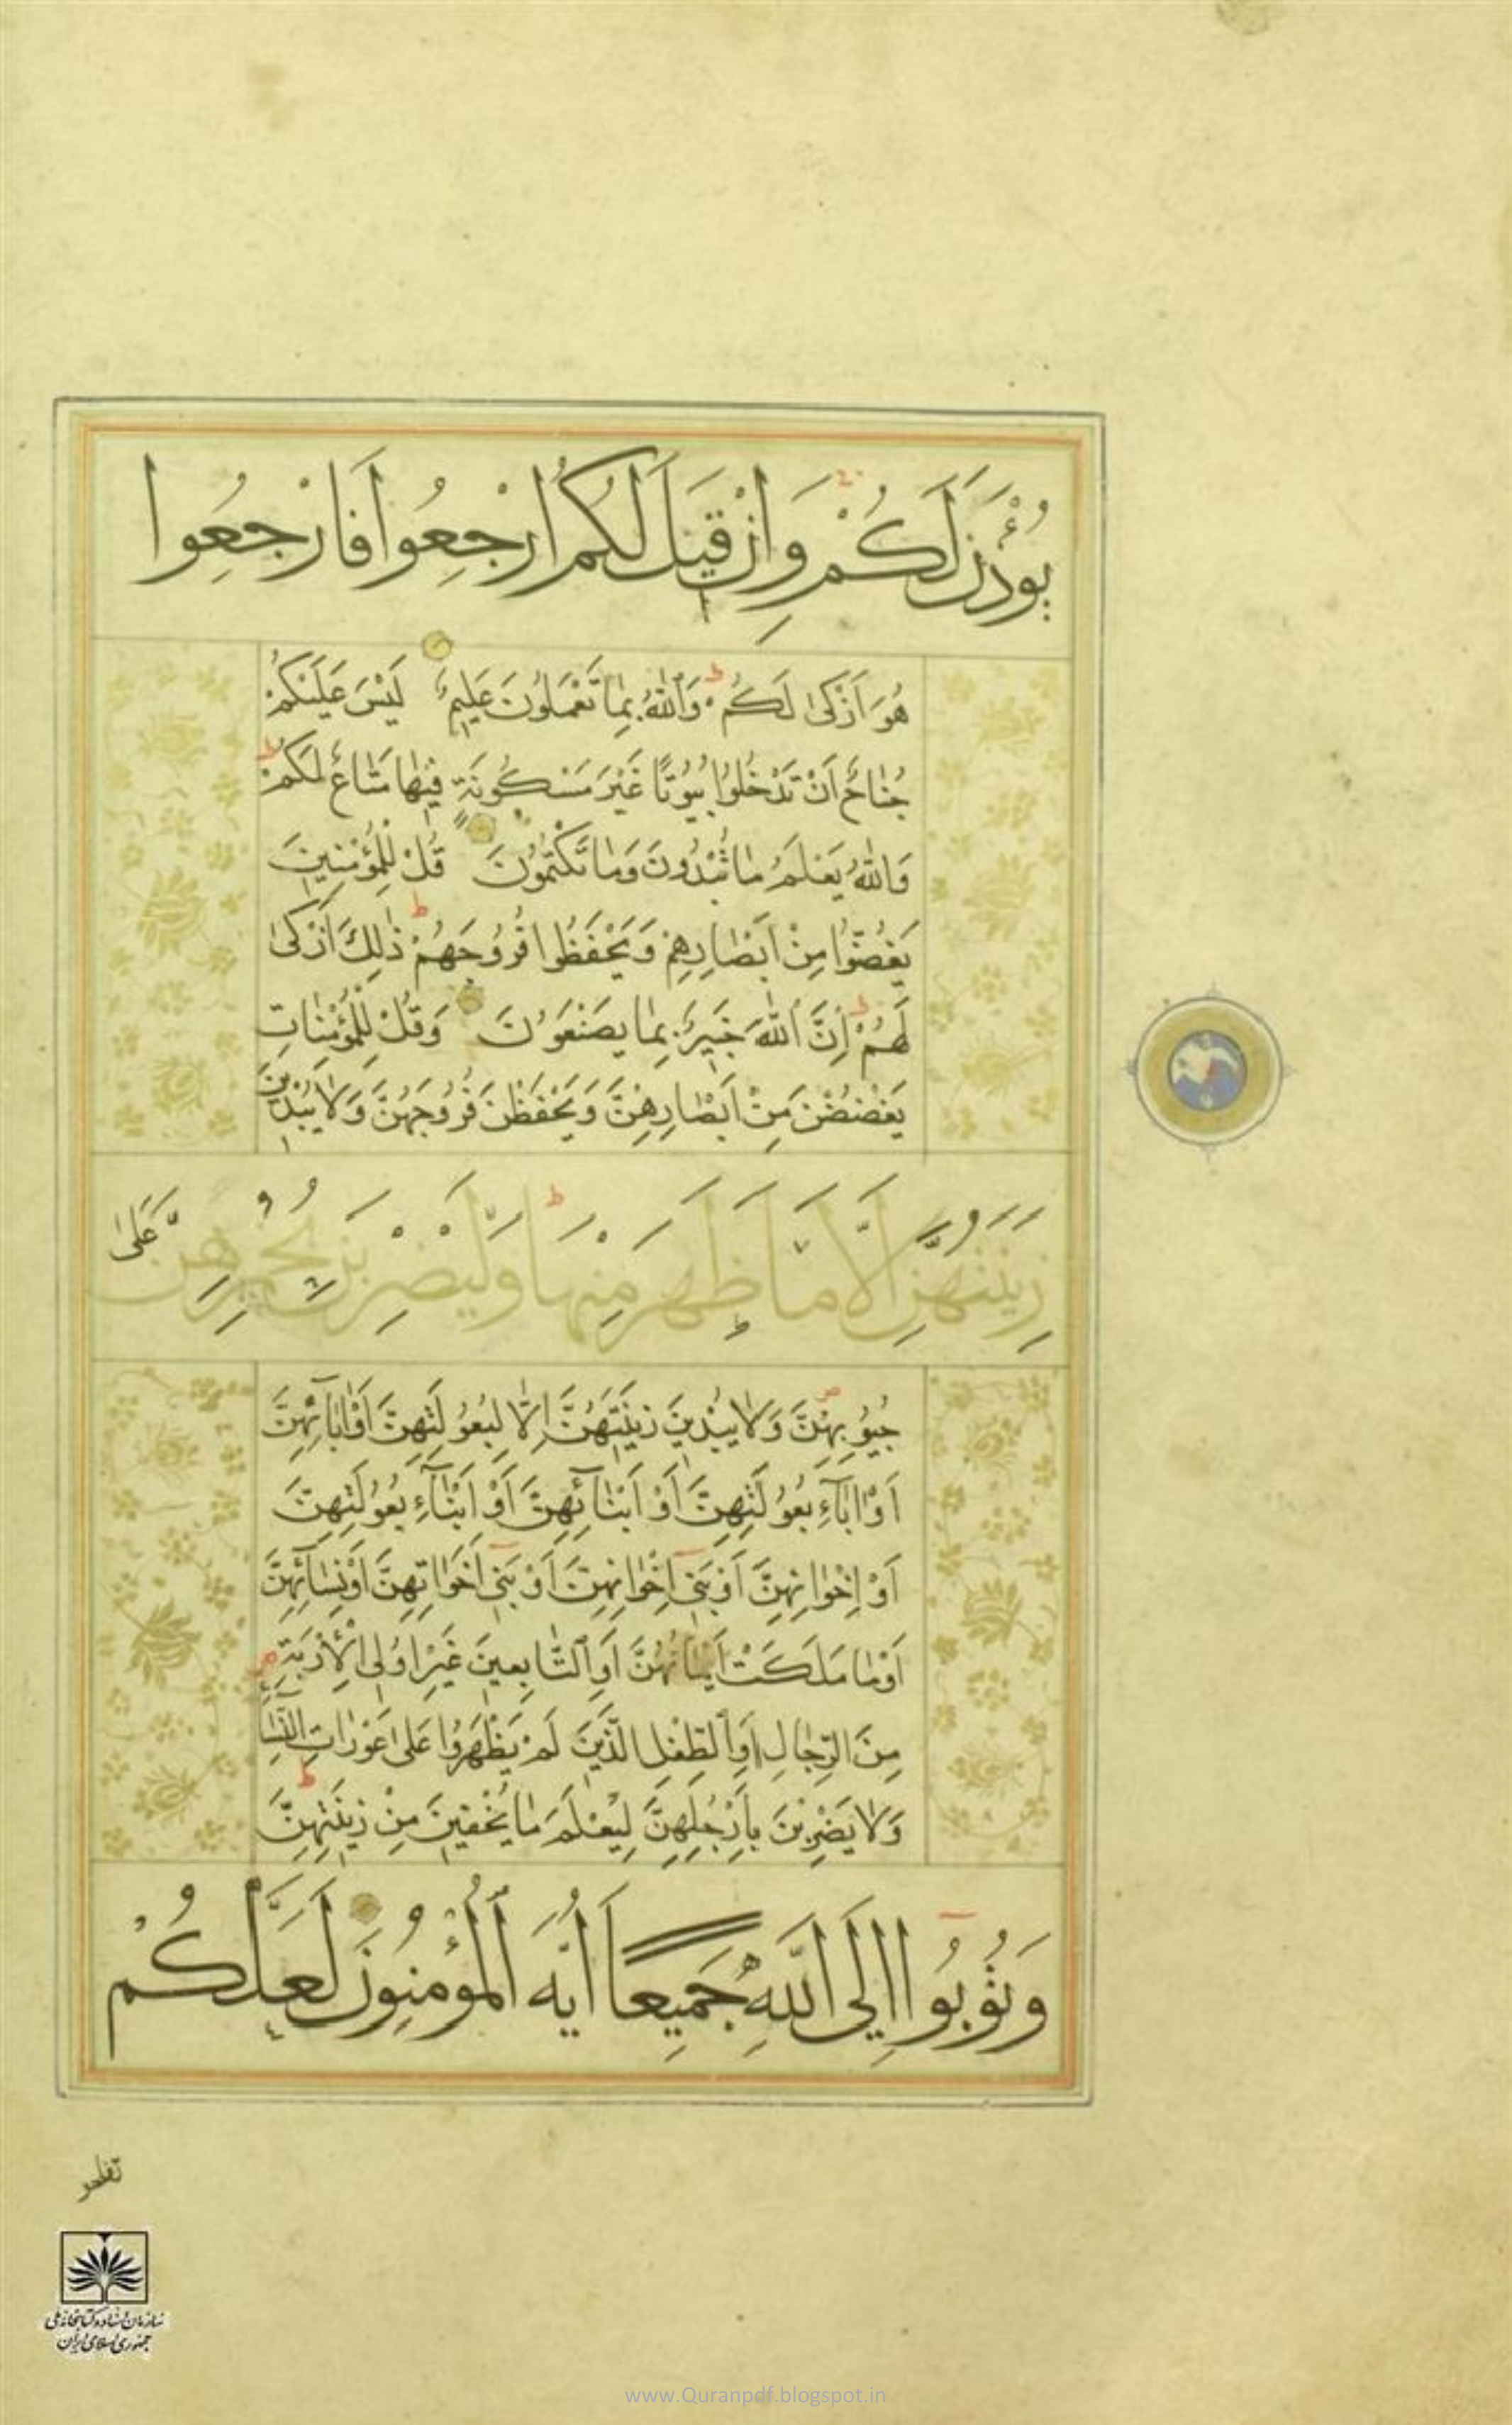 يُؤْذَنَ لَكُمْ وَاِنْ قيلَ لَكُمُ ارْجِعُوا فَارْجِعُوا
هُوَ اَزْكىٰ لَكُمْ ط وَاللّٰهُ بِمٰا تَعْمَلُونَ عَليمٌ لَيْسَ عَلَيْكُمْ
جُنٰاحٌ اَنْ تَدْخُلُوا بُيُوتًا غَيْرَ مَسْكُونَةٍ فيهٰا مَتٰاعٌ لَكُمْ ط
وَاللّٰهُ يَعْلَمُ مٰا تُبْدُونَ وَمٰا تَكْتُمُونَ قُلْ لِلْمُؤْمِنينَ
يَغُضُّوا مِنْ اَبْصٰارِهِمْ وَيَحْفَظُوا فُرُوجَهُمْ ط ذٰلِكَ اَزْكىٰ
لَهُمْ ط اِنَّ اللّٰهَ خَبيرٌ بِمٰا يَصْنَعُونَ وَقُلْ لِلْمُؤْمِنٰاتِ
يَغْضُضْنَ مِنْ اَبْصٰارِهِنَّ وَيَحْفَظْنَ فُرُوجَهُنَّ وَلٰا يُبْدينَ
زينَتَهُنَّ اِلَّا مٰا ظَهَرَ مِنْهٰا ط وَلْيَضْرِبْنَ بِخُمُرِهِنَّ عَلىٰ
جُيُوبِهِنَّ ص وَلٰا يُبْدينَ زينَتَهُنَّ اِلّٰا لِبُعُولَتِهِنَّ اَوْ اٰبٰائِهِنَّ
اَوْ اٰبٰآءِ بُعُولَتِهِنَّ اَوْ اَبْنٰآئِهِنَّ اَوْ اَبْنٰآءِ بُعُولَتِهِنَّ
اَوْ اِخْوٰانِهِنَّ اَوْ بَنىٓ اِخْوٰانِهِنَّ اَوْ بَنىٓ اَخَوٰاتِهِنَّ اَوْ نِسٰآئِهِنَّ
اَوْ مٰا مَلَكَتْ اَيْمٰانُهُنَّ اَوِ التّٰابِعينَ غَيْرِ اُولِى الْاِرْبَةِ
مِنَ الرِّجٰالِ اَوِ الطِّفْلِ الَّذينَ لَمْ يَظْهَرُوا عَلىٰ عَوْرٰاتِ النِّسٰآءِ
وَلٰا يَضْرِبْنَ بِاَرْجُلِهِنَّ لِيُعْلَمَ مٰا يُخْفينَ مِنْ زينَتِهِنَّ ط
وَتُوبُوٓا اِلَى اللّٰهِ جَميعًا اَيُّهَ الْمُؤْمِنُونَ لَعَلَّكُمْ
تفلحو
سازمان اسناد و کتابخانه ملی
جمهوری اسلامی ایران
www.Quranpdf.blogspot.in